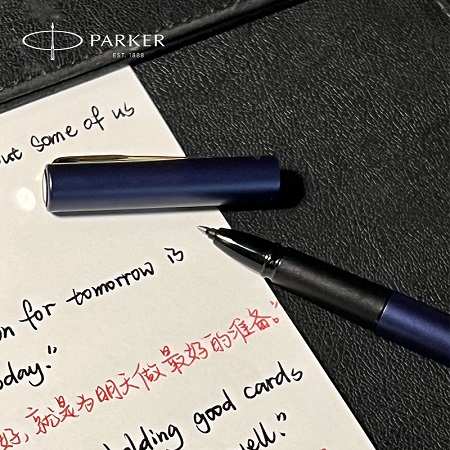 PARKER
EST. 1888
out some of us
on for tomorrow is
oday."
好,就是为明天做最好的准备。"
holding good cards
well."